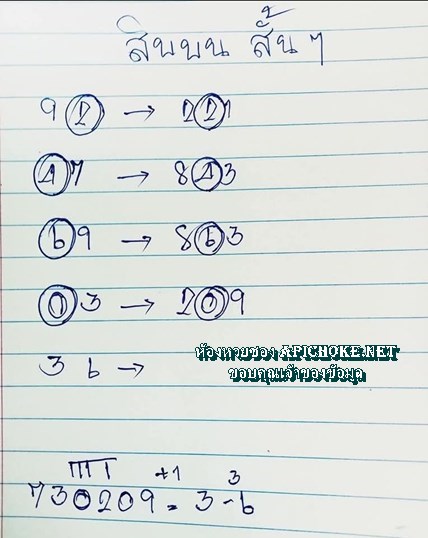 สิบบน สั้น ๆ
92 → 221
47 → 843
69 → 863
03 → 209
36 →
ห้องหวยซอง APICHOKE.NET
ขอบคุณเจ้าของข้อมูล
+1 3
730209 = 3-6